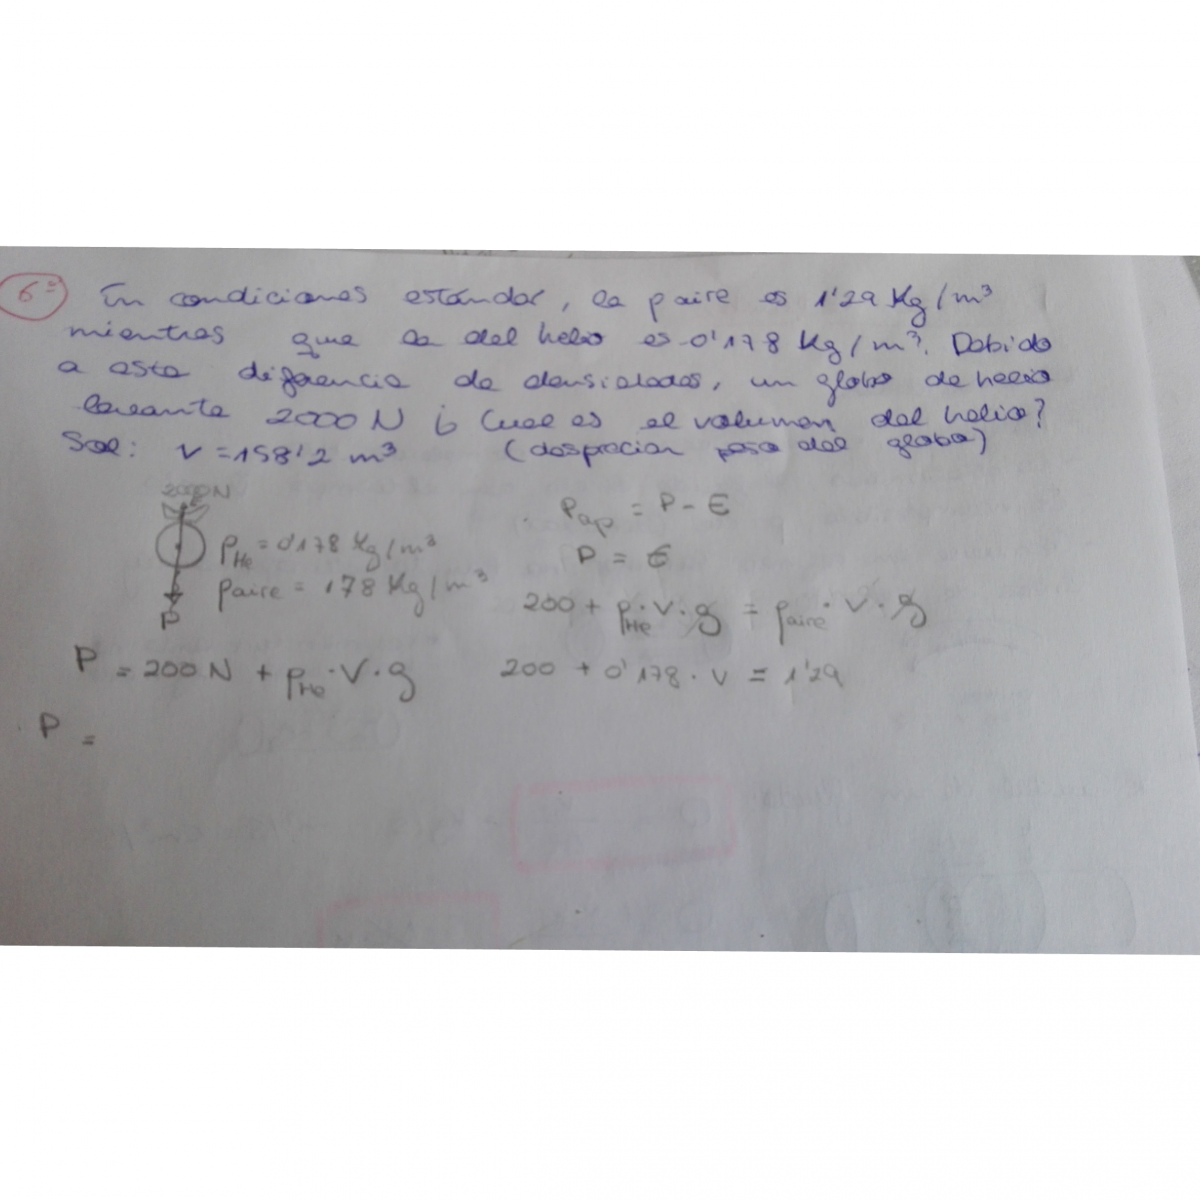 6º
En condiciones estándar, la ρaire es 1'29 Kg/m³
mientras que la del helio es 0'178 Kg/m³. Debido
a esta diferencia de densidades, un globo de helio
levanta 2000 N ¿Cual es el volumen del helio?
Sol: V = 158'2 m³ (despreciar peso del globo)
2000N
ρHe = 0'178 Kg/m³
ρaire = 178 Kg/m³
P
Pap = P - E
P = E
200 + ρHe · V · g = ρaire · V · g
P = 200 N + ρHe · V · g
200 + 0'178 · V = 1'29
P =